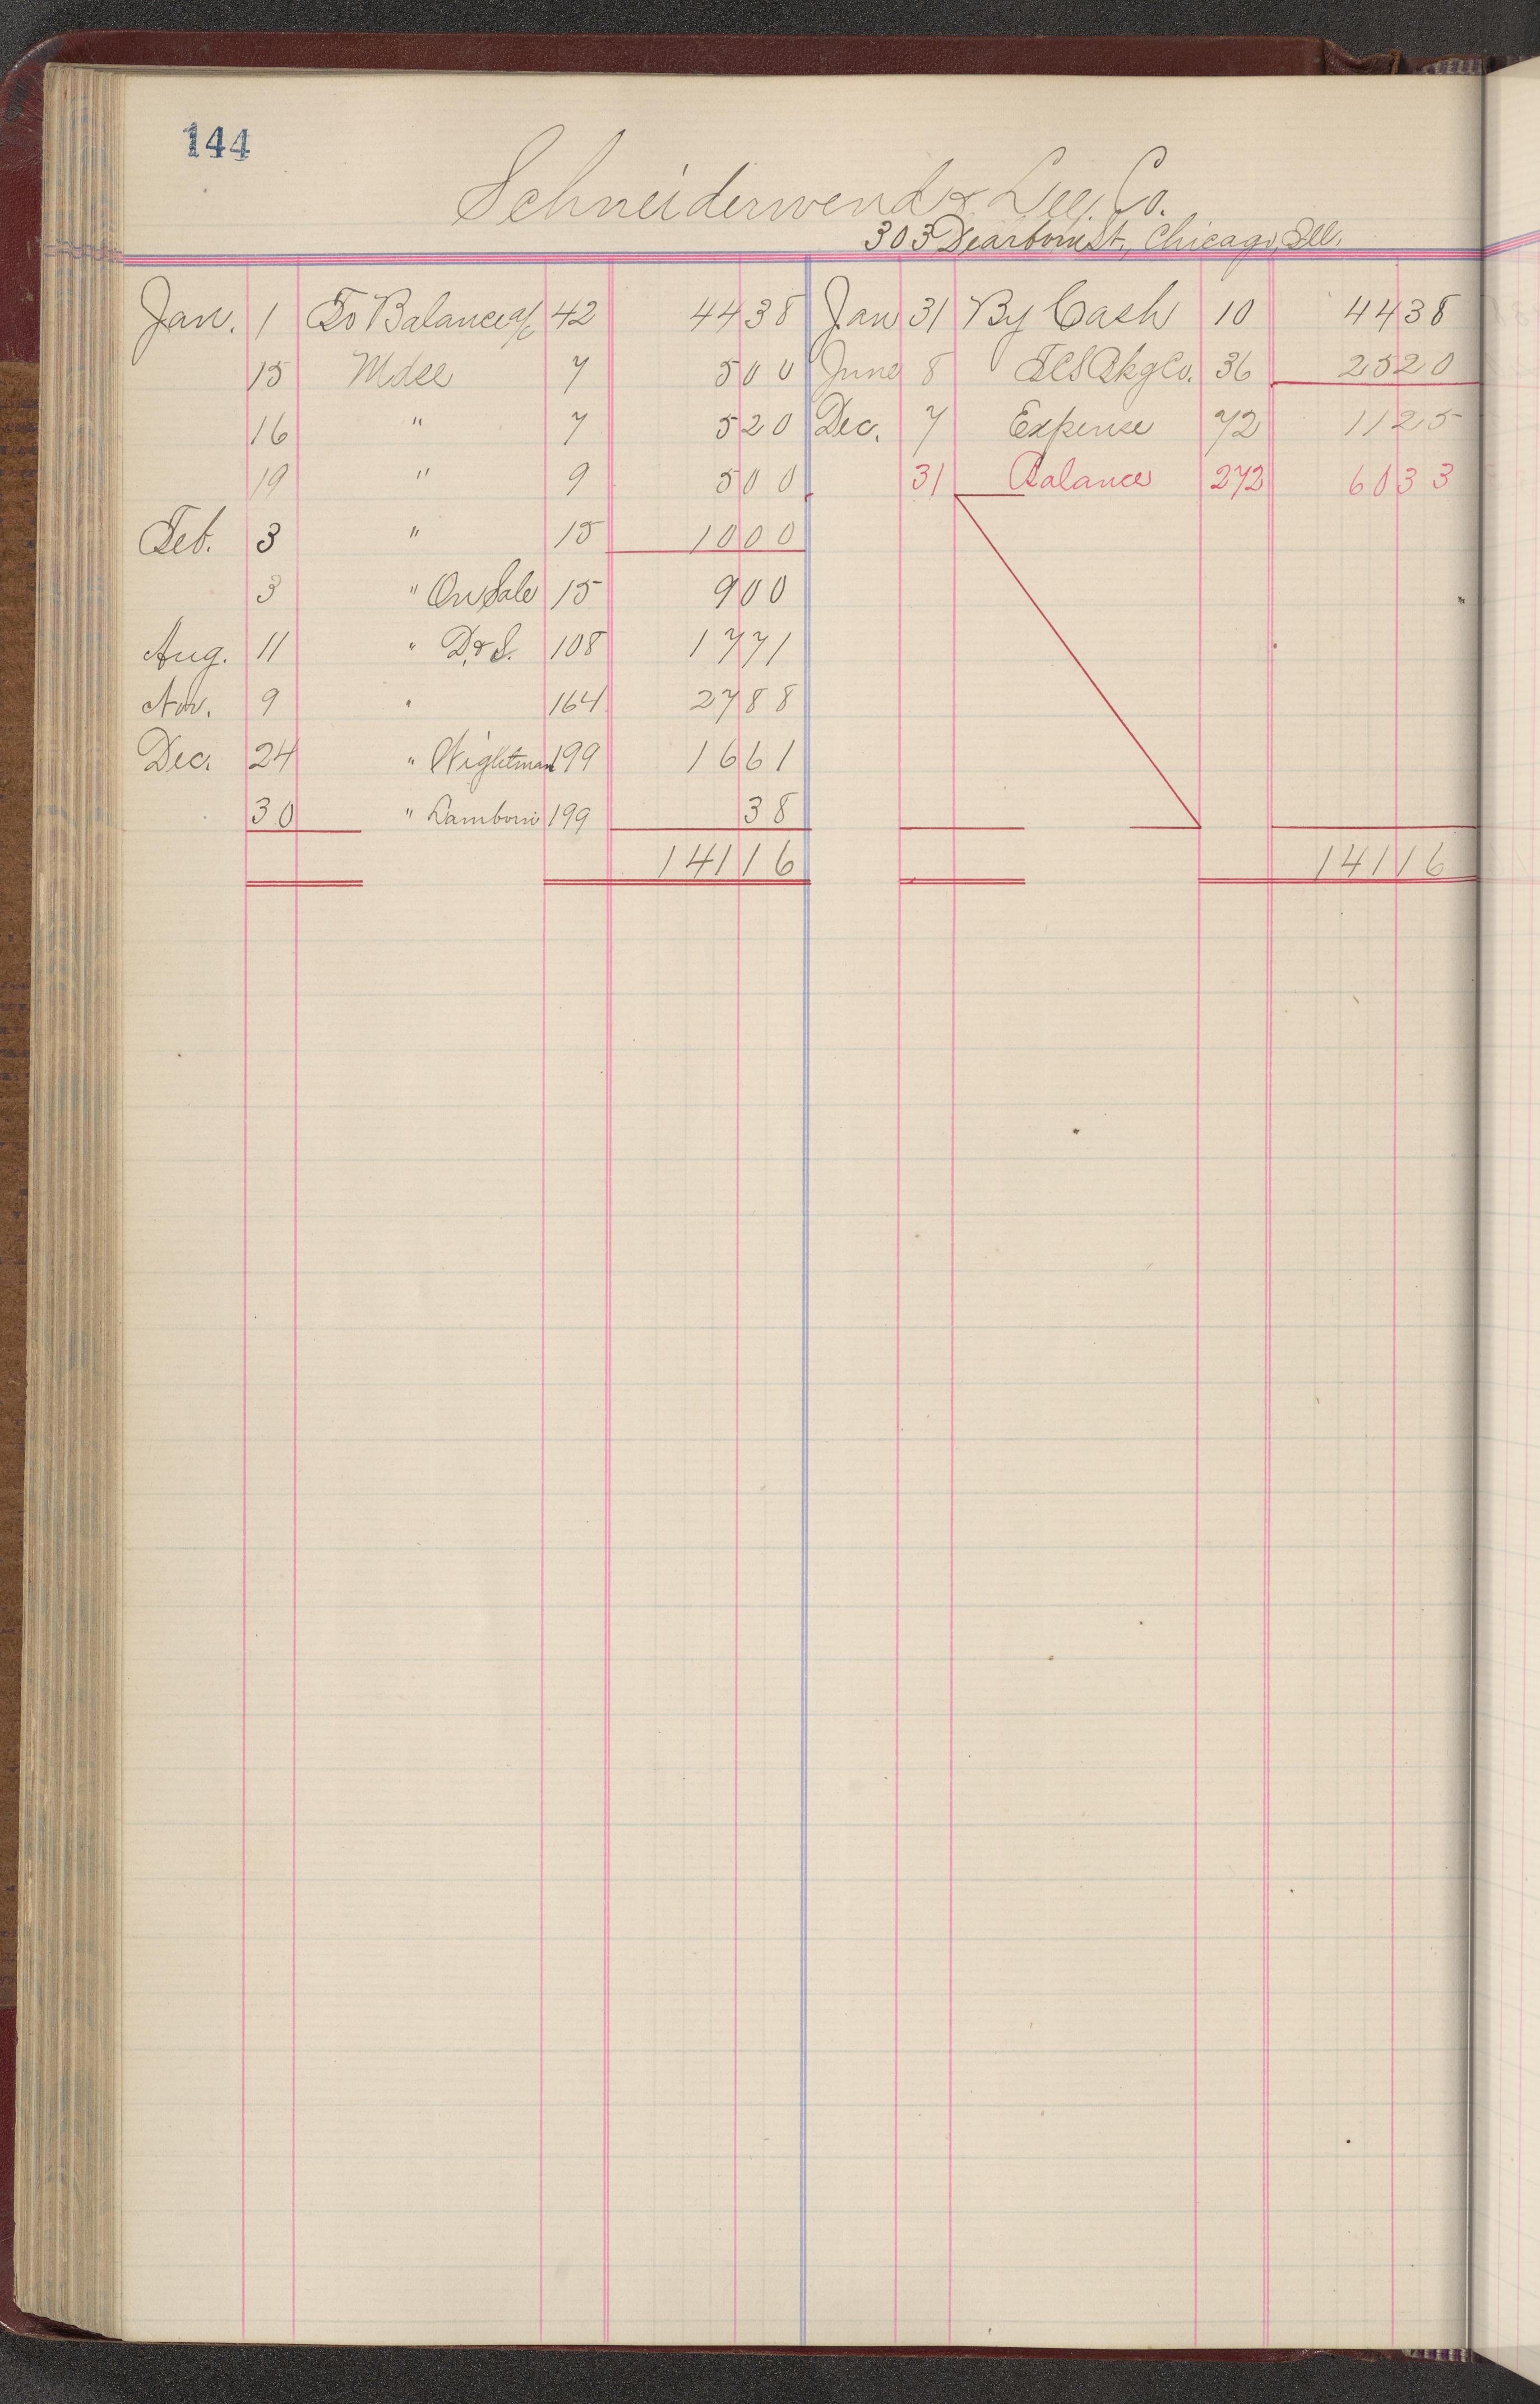 144
Schneiderwend & Lee, Co.
303 Dearborn St., Chicago, Ill.
Jan. 1 To Balance a/c 42 44 38 Jan 31 By Cash 10 44 38
15 Mdse 7 5 00 June 8 36 25 20
16 " 7 5 20 Dec. 7 Expense 72 11 25
19 " 9 5 00 31 Balance 272 60 33
Feb. 3 " 15 10 00
3 " On Sale 15 9 00
Aug. 11 " D. & S. 108 17 71
Nov. 9 " 164 27 88
Dec. 24 " Wightman 199 16 61
30 " Lamboni 199 38
141 16 141 16